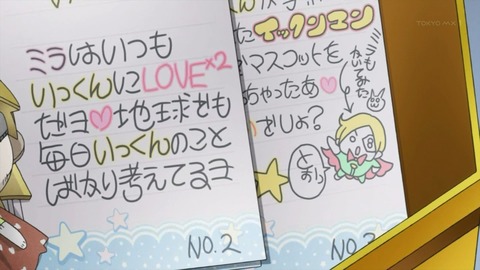 ミラはいつも
いっくんにLOVE×2
だヨ♡地球でも
毎日いっくんのこと
ばかり考えてるヨ
NO.2
たイックンマン
マスコットを
ちゃったあ♡
でしょ?
ミラも
かいて
みた
NO.
TOKYO MX